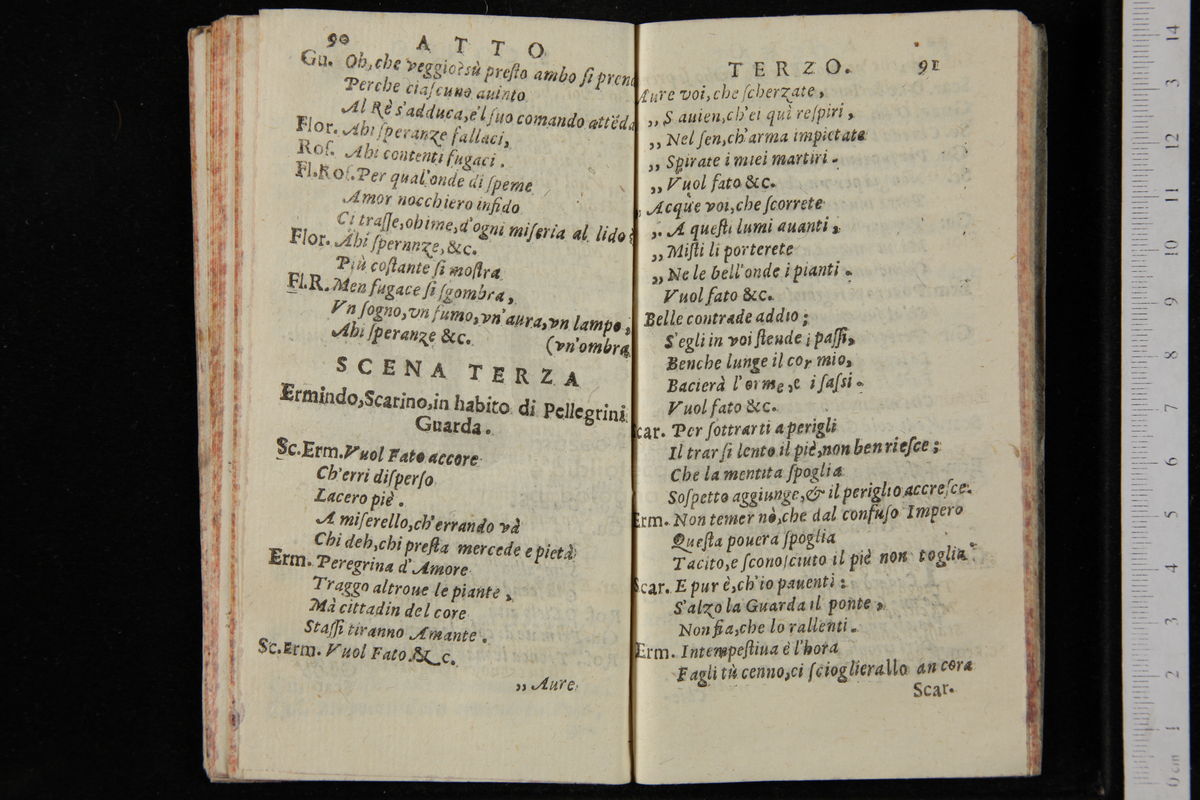 90 ATTO
Gu. Oh, che veggio? sù presto ambo si prend
Perche ciascuno auinto
Al Rè s'adduca, e'l suo comando attēda
Flor. Ahi speranze fallaci,
Ros. Ahi contenti fugaci.
Fl. Ros. Per qual'onde di speme
Amor nocchiero infido
Ci trasse, ohime, d'ogni miseria al lido?
Flor. Ahi spernnze, &c.
Più costante si mostra
Fl. R. Men fugace si sgombra,
Vn sogno, vn fumo, vn'aura, vn lampo,
Ahi speranze &c. (vn'ombra
SCENA TERZA
Ermindo, Scarino, in habito di Pellegrini
Guarda.
Sc. Erm. Vuol Fato accore
Ch'erri disperso
Lacero piè.
A miserello, ch'errando và
Chi deh, chi presta mercede e pietà
Erm. Peregrina d'Amore
Traggo altroue le piante,
Mà cittadin del core
Stassi tiranno Amante.
Sc. Erm. Vuol Fato, & c.
„ Aure
TERZO. 91
Aure voi, che scherzate,
„ S auien, ch'ei quì respiri,
„ Nel sen, ch'arma impietate
„ Spirate i miei martiri.
„ Vuol fato &c.
„ Acque voi, che scorrete
„. A questi lumi auanti,
„ Misti li porterete
„ Ne le bell'onde i pianti.
Vuol fato &c.
Belle contrade addio;
S'egli in voi stende i passi,
Benche lunge il cor mio,
Bacierà l'orme, e i sassi.
Vuol fato &c.
Scar. Per sottrarti a perigli
Il trar si lento il piè, non ben riesce;
Che la mentita spoglia
Sospetto aggiunge, & il periglio accresce.
Erm. Non temer nò, che dal confuso Impero
Questa pouera spoglia
Tacito, e sconosciuto il piè non toglia.
Scar. E pur è, ch'io pauenti:
S'alzo la Guarda il ponte,
Non fia, che lo rallenti.
Erm. Intempestiua è l'hora
Fagli tù cenno, ci scioglierallo ancora
Scar.
14
13
12
11
10
9
8
7
6
5
4
3
2
1
0 cm